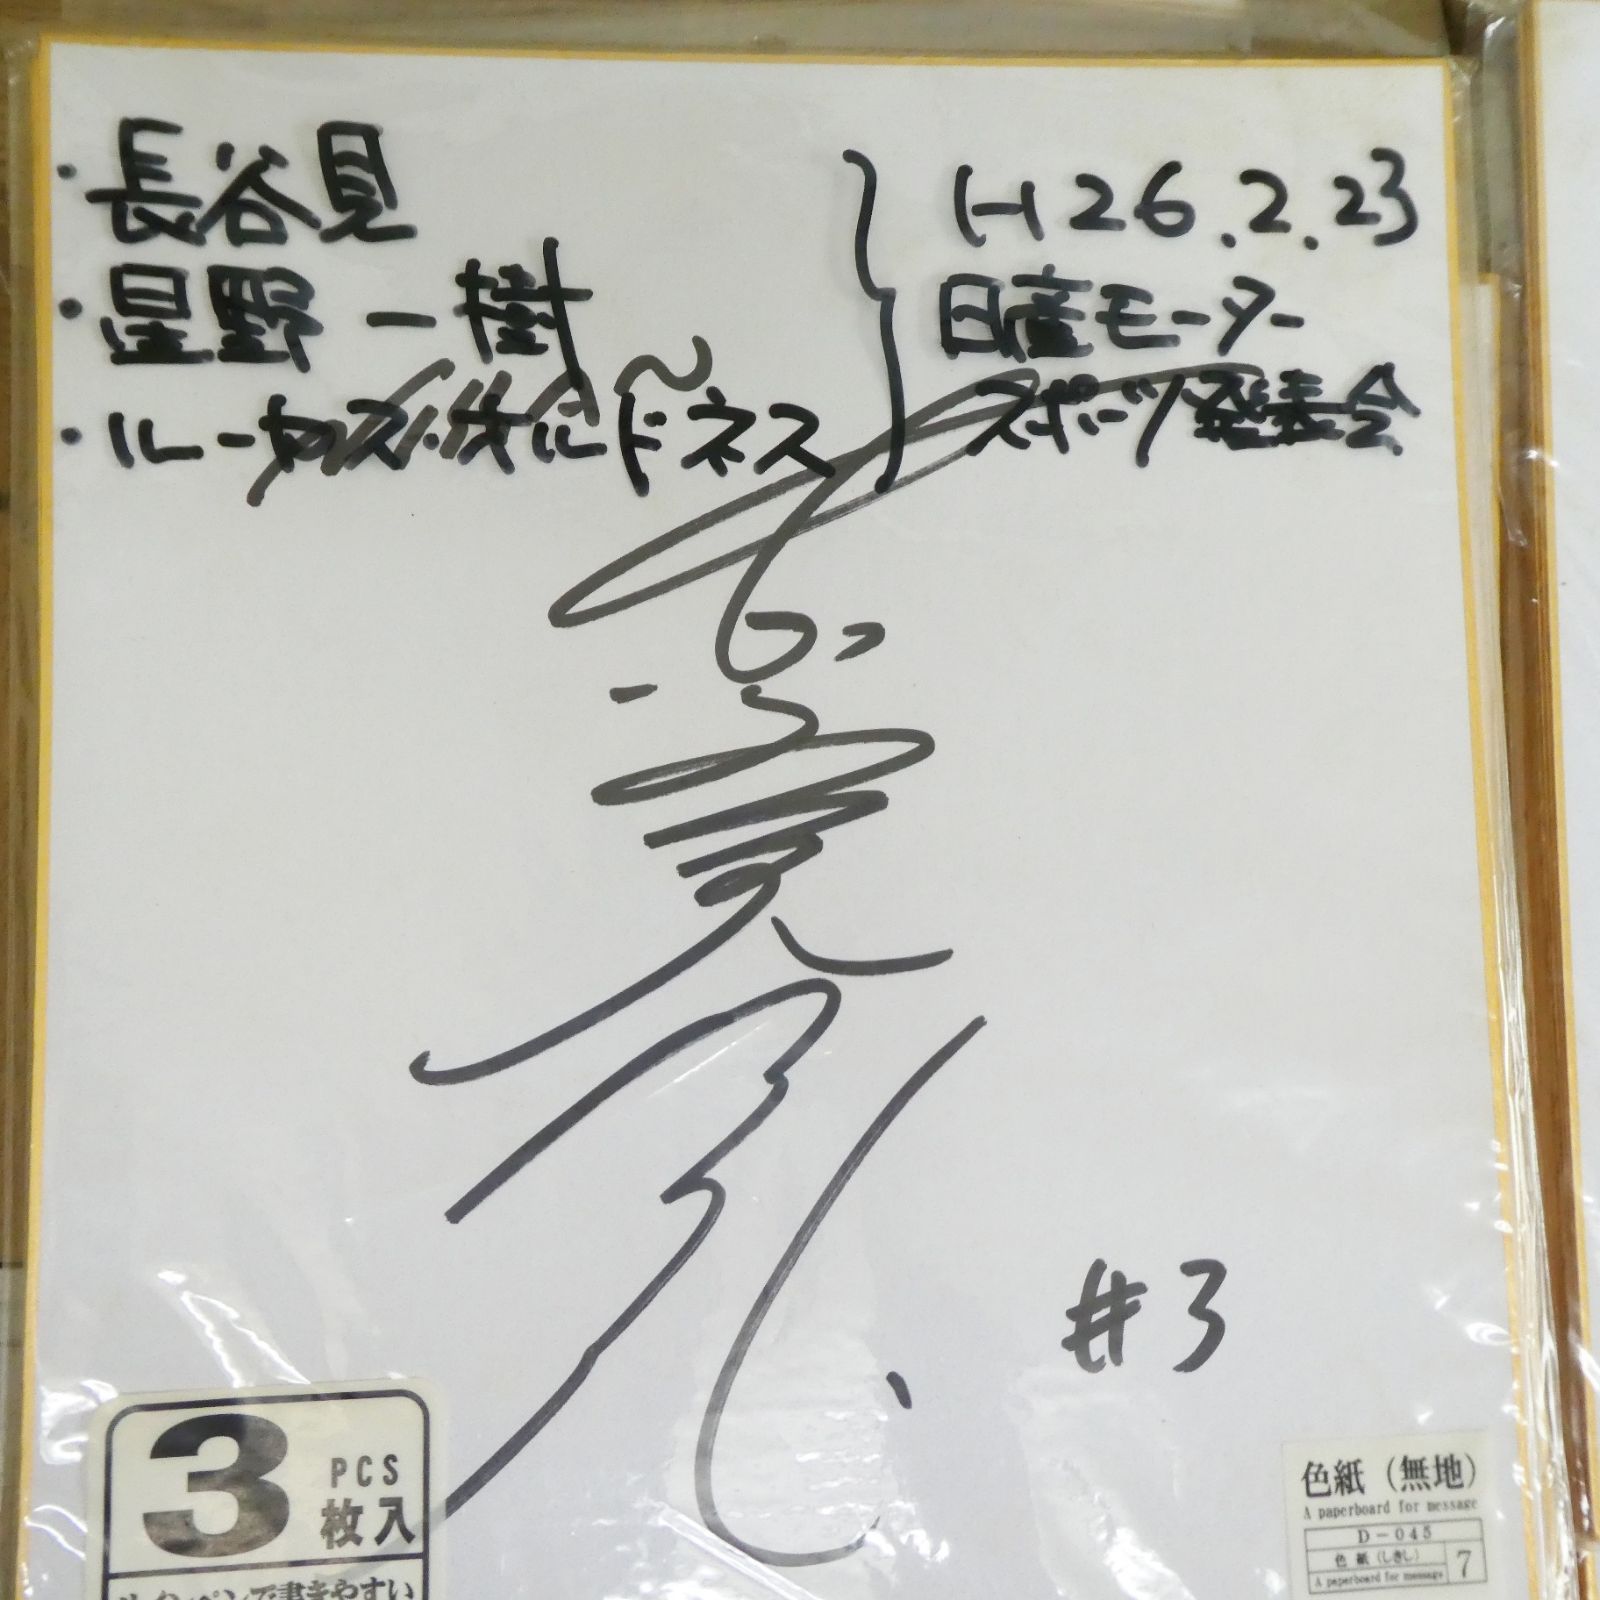 ・長谷見
・星野一樹
・ルーカス・オルドネス
H26.2.23
日産モーター
スポーツ発表会
#3
3 PCS 枚入
サインペンで書きやすい
色紙(無地)
A paperboard for message
D-045
色紙(しきし)
7
A paperboard for message